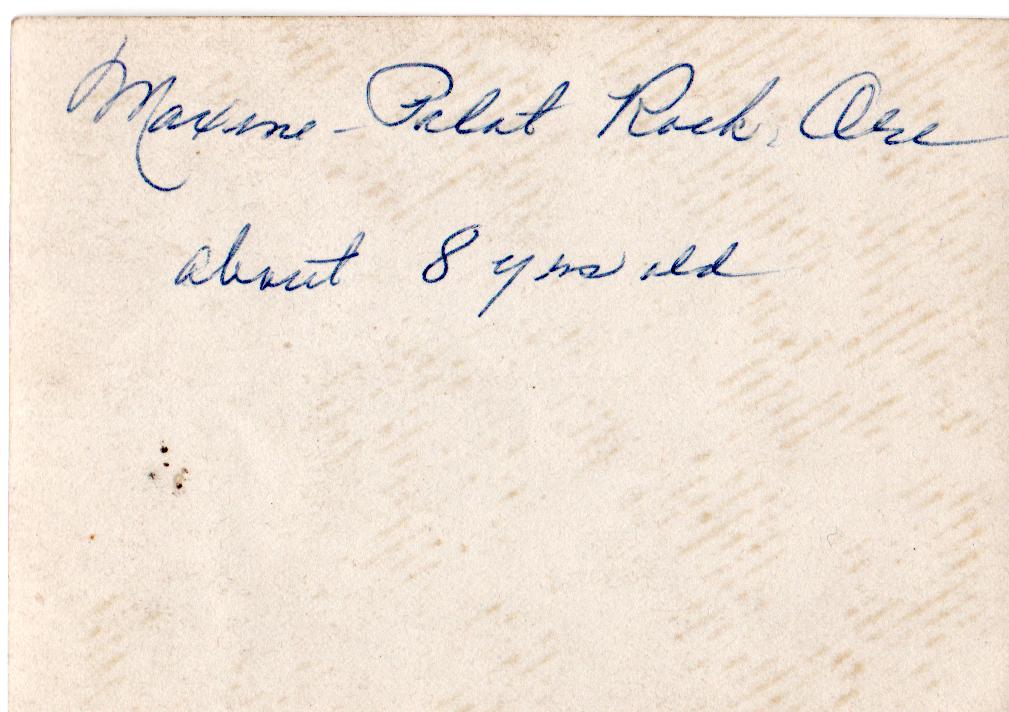 Maxine - Pilot Rock, Ore
about 8 yrs old